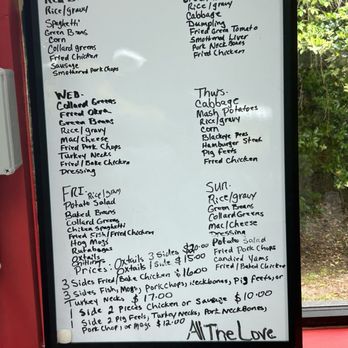 Rice/gravy
Spaghetti
Green Beans
Corn
Collard greens
Fried Chicken
Sausage
Smothered Pork Chops
Rice/gravy
Cabbage
Dumpling
Fried Green Tomato
Smothered Liver
Pork Neck Bones
Fried Chicken
WED.
Collard Greens
Fried Okra
Green Beans
Rice/gravy
Mac/Cheese
Fried Pork Chops
Turkey Necks
Fried/Bake Chicken
Dressing
Thurs.
Cabbage
Mash Potatoes
Rice/gravy
Corn
Blackeye Peas
Hamburger Steak
Pig feets
Fried Chicken
FRI: Rice/gravy
Potato Salad
Baked Beans
Collard Greens
Chicken Spaghetti
Fried Fish/Fried Chicken
Hog Mogs
Rutabagas
Oxtails
SUN.
Rice/gravy
Green Beans
Collard Greens
Mac/cheese
Dressing
Potato Salad
Fried Pork Chops
Candied Yams
Fried/Baked Chicken
Oxtails 3 Sides $20.00
Prices: Oxtails 1 Side $15.00
3 Sides Fried/Bake Chicken $16.00
3 Sides Fish, Mogs, Pork Chops, Neckbones, Pig feets, or
Turkey Necks $17.00
1 Side 2 Pieces Chicken or Sausage $10.00
1 Side 2 Pig Feets, Turkey Necks, Pork Neck Bones,
Pork Chop, or Mogs $12.00
All The Love